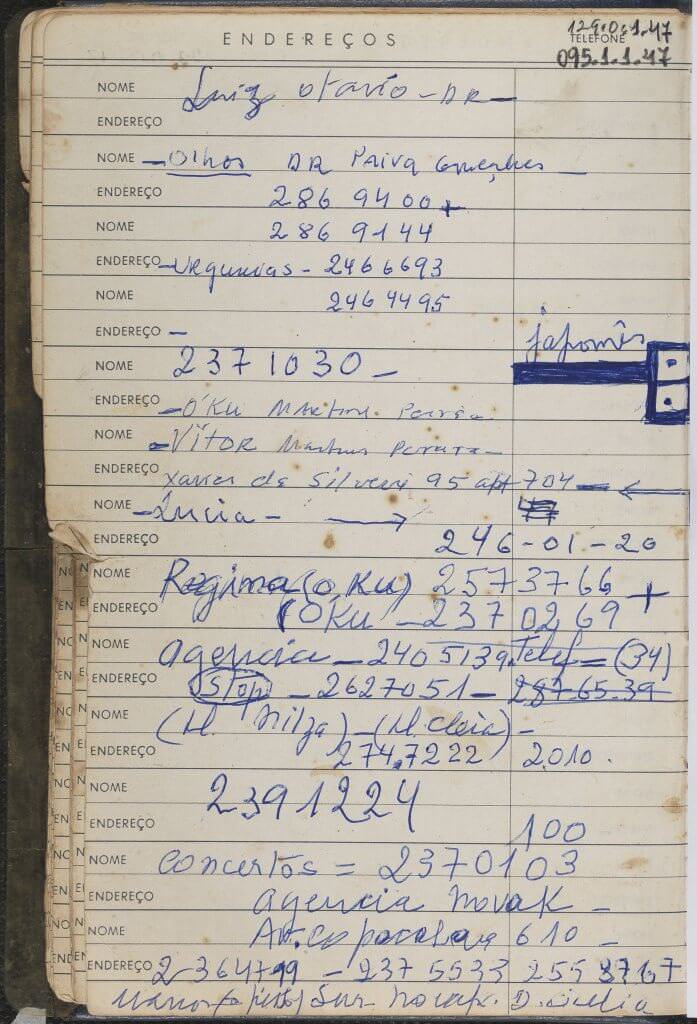 129.0.1.47
ENDEREÇOS TELEFONE
095.1.1.47
NOME Luiz Otavio - DR -
ENDEREÇO
NOME - Olhos DR Paiva Gonçalves -
ENDEREÇO 286 9400 +
NOME 286 9144
ENDEREÇO - Urgencias - 2466693
NOME 2464495
ENDEREÇO - japonês
NOME 2371030 -
ENDEREÇO - OKu Martins Pereira
NOME - Vitor Martins Pereira -
ENDEREÇO Xavier da Silveira 95 apt 704 -
NOME - Lucia -
ENDEREÇO 246-01-20
NOME Regina (OKu) 2573766 +
ENDEREÇO (OKu - 2370269
NOME agencia - 2405139. Telef = (34)
ENDEREÇO Stop - 2627051 - 287-65.39
NOME (M. Nilza) - (M. Cleia) -
ENDEREÇO 274.7222 2010.
NOME 2391224
ENDEREÇO 100
NOME Concertos = 2370103
ENDEREÇO agencia Novak -
NOME Av. Copacabana 610 -
ENDEREÇO 2364799 - 2375533 255 3767